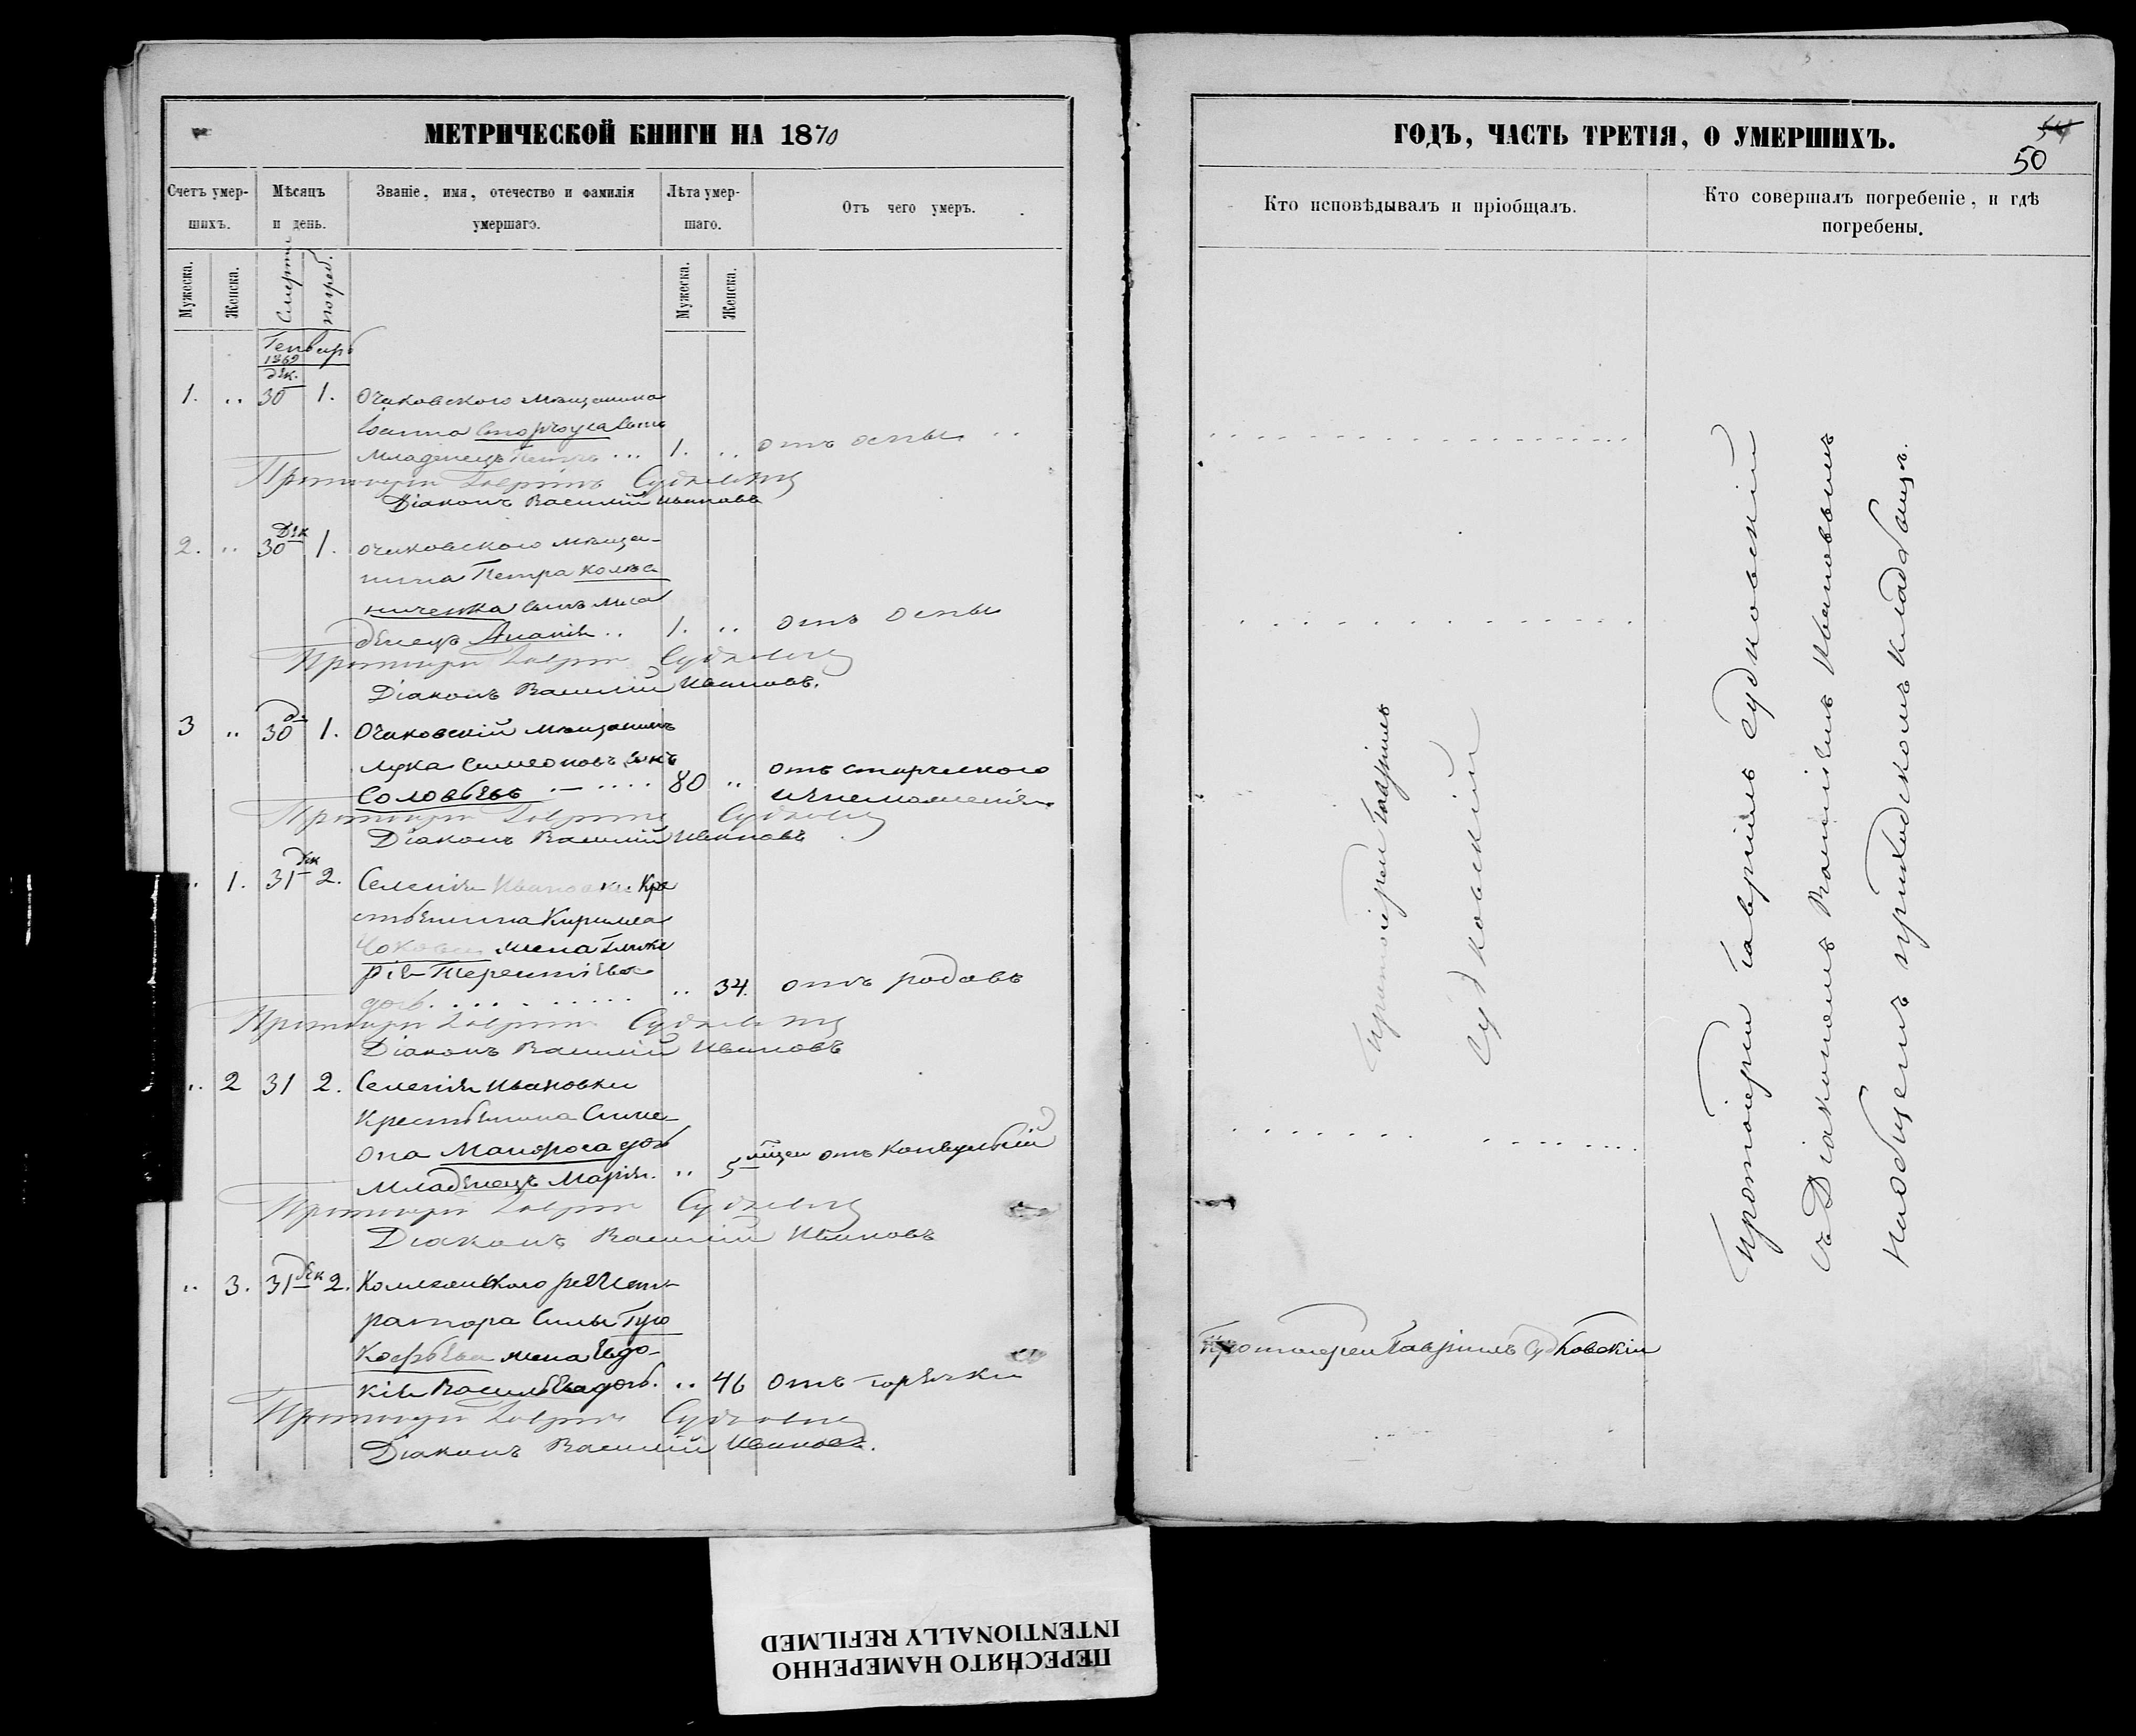 МЕТРИЧЕСКОЙ КНИГИ НА 1870
Счетъ умер-
шихъ.
Мѣсяцъ
и день.
Званіе, имя, отечество и фамилія
умершаго.
Лѣта умер-
шаго.
Отъ чего умеръ.
Мужеска.
Женска.
Смерти
погреб.
Мужеска.
Женска.
Генварь
1869
дек.
1. .. 30 1. Очаковского мещанина
Іоанна сынъ
младенецъ ... 1. .. отъ оспы ..
Протоіерей Гавріилъ Судковскій
Діаконъ Василій Ивановъ
2. .. 30 Дек 1. очаковского меща-
нина Петра
сынъ мла
денецъ Ананія .. 1. .. отъ оспы
Протоіерей Гавріилъ Судковскій
Діаконъ Василій Ивановъ.
3 .. 30 д. 1. Очаковскій мещанинъ
Лука Симеоновъ сынъ
Соловьевъ 80 .. отъ старческого
изнеможенія
Протоіерей Гавріилъ Судковскій
Діаконъ Василій Ивановъ
.. 1. 31 Дек 2. Селенія Ивановки Кре
стьянина Кирилла
жена Глике
рія Терентіева
дочь. .. 34. отъ родовъ
Протоіерей Гавріилъ Судковскій
Діаконъ Василій Ивановъ
.. 2 31 2. Селенія Ивановки
Крестьянина Симе-
она дочь
младенецъ Марія. .. 5 отъ конвульсій
Протоіерей Гавріилъ Судковскій
Діаконъ Василій Ивановъ
.. 3. 31 дек 2. Коллежского регист-
ратора Силы
жена Евдо-
кія Васильева дочь. .. 46 отъ горячки
Протоіерей Гавріилъ Судковскій
Діаконъ Василій Ивановъ.
ГОДЪ, ЧАСТЬ ТРЕТІЯ, О УМЕРШИХЪ.
50
Кто исповѣдывалъ и пріобщалъ.
Кто совершалъ погребеніе, и гдѣ
погребены.
Протоіерей Гавріилъ
Судковскій
Протоіерей Гавріилъ Судковскій
Протоіерей Гавріилъ Судковскій
съ Діакономъ Василіемъ Ивановымъ
на общемъ приходскомъ кладбищѣ.
ПЕРЕСНЯТО НАМЕРЕННО
INTENTIONALLY REFILMED